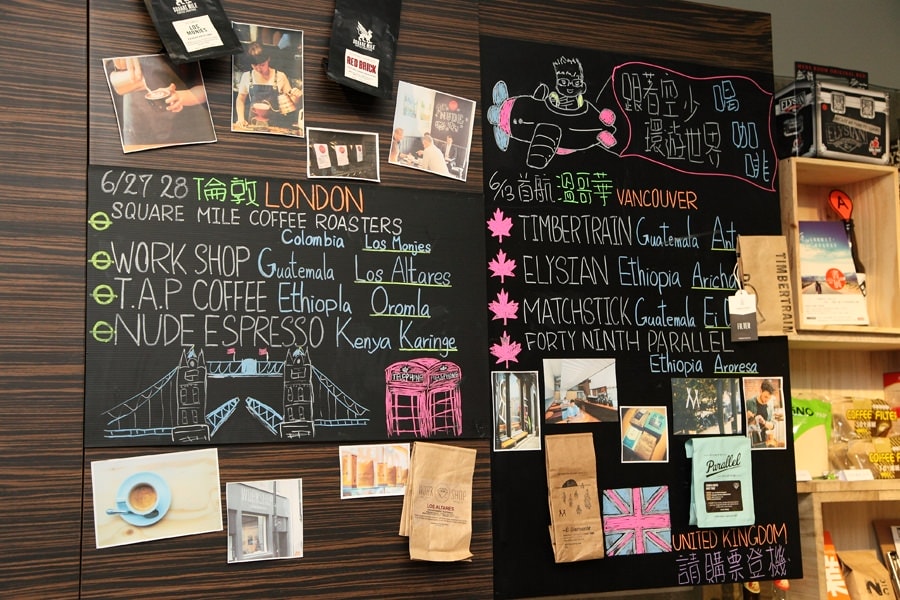 LOS MONJES
SQUARE MILE
RED BRICK
6/27 28 倫敦 LONDON
SQUARE MILE COFFEE ROASTERS
Colombia Los Monjes
WORK SHOP Guatemala Los Altares
T.A.P COFFEE Ethiopia Oromla
NUDE ESPRESSO Kenya Karinge
TELEPHONE TELEPHONE
WORK SHOP
LOS ALTARES
跟著空少 喝
環遊世界 咖
啡
6/13 首航 溫哥華 VANCOUVER
TIMBERTRAIN Guatemala Ant
ELYSIAN Ethiopia Aricha
MATCHSTICK Guatemala
FORTY NINTH PARALLEL
Ethiopia Aroresa
TIMBERTRAIN
FILTER
Parallel
UNITED KINGDOM
請購票登機
ELYSIAN
A
COFFEE FILTER
COFFEE FILTER